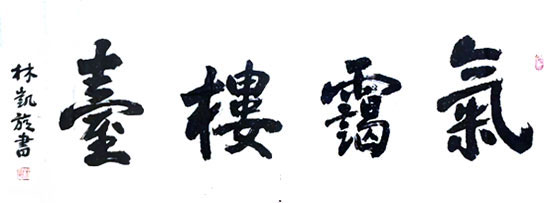 氣靄樓臺
林凱旋書